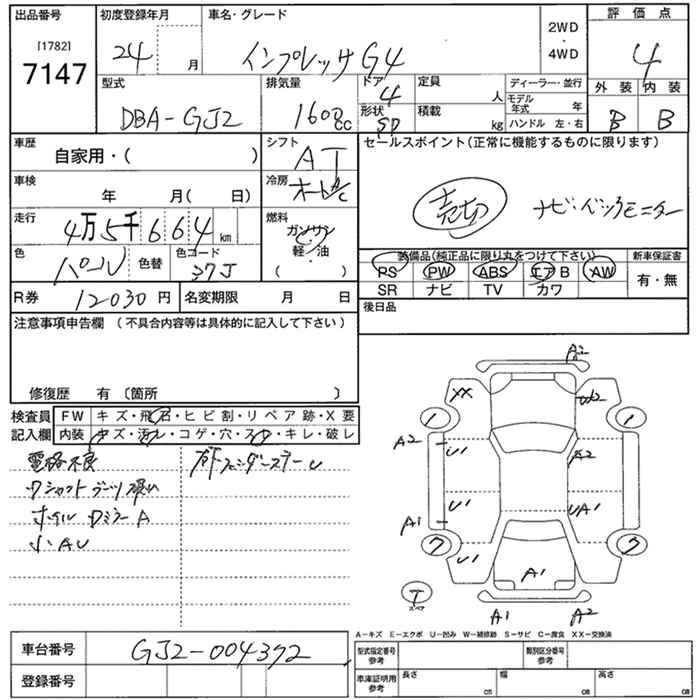 出品番号 初度登録年月 車名・グレード 2WD・4WD 評価点
[1782]
7147 24 月 インプレッサ G4 4
型式 排気量 ドア 定員 ディーラー・並行 外装 内装
DBA-GJ2 1600cc 4 人 モデル年式 年 B B
形状 積載 kg ハンドル 左・右
SD
車歴 シフト セールスポイント(正常に機能するものに限ります)
自家用・( ) AT
車検 冷房 売切 ナビ・バックモニター
年 月( 日) オートA/C
走行 燃料
4万5千664km ガソリン
軽・油
( )
色 色替 色コード 装備品(純正品に限り丸をつけて下さい) 新車保証書
パール 37J PS PW ABS エアB AW 有・無
SR ナビ TV カワ
R券 12030円 名変期限 月 日 後日品
注意事項申告欄 (不具合内容等は具体的に記入して下さい)
修復歴 有 〔箇所 〕
検査員 FW キズ・飛石・ヒビ割・リペア跡・X要
記入欄 内装 キズ・汚レ・コゲ・穴・スレ・キレ・破レ
ホイル ワミラーA
小AU
XX W2
1 1
A2 U1 A2
U1 UA1
A1
ワ ワ
U1
A1
T
スペア
A1 A2
A−キズ E−エクボ U−凹み W−補修跡 S−サビ C−腐食 XX−交換済
車台番号 GJ2-004372 型式指定番号 参考 類別区分番号 参考
登録番号 車庫証明用 参考 長さ cm 幅 cm 高さ cm